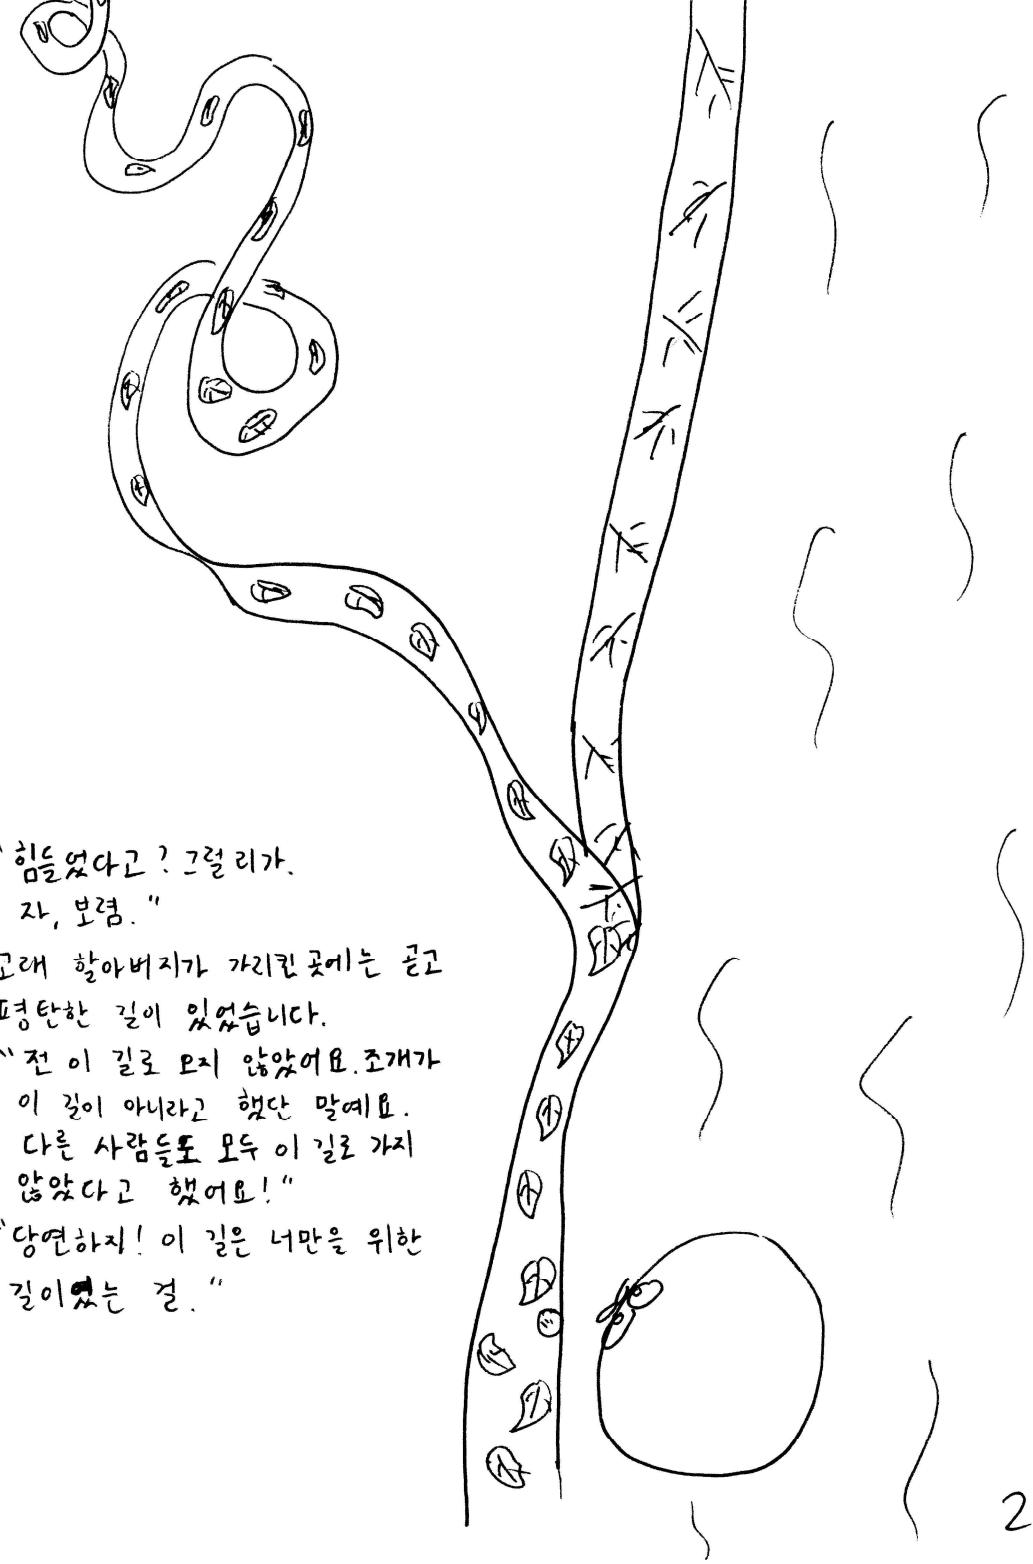 "힘들었다고? 그럴리가.
자, 보렴."
고래 할아버지가 가리킨 곳에는 곧고
평탄한 길이 있었습니다.
"전 이 길로 오지 않았어요. 조개가
이 길이 아니라고 했단 말예요.
다른 사람들도 모두 이 길로 가지
않았다고 했어요!"
"당연하지! 이 길은 너만을 위한
길이였는 걸."
2